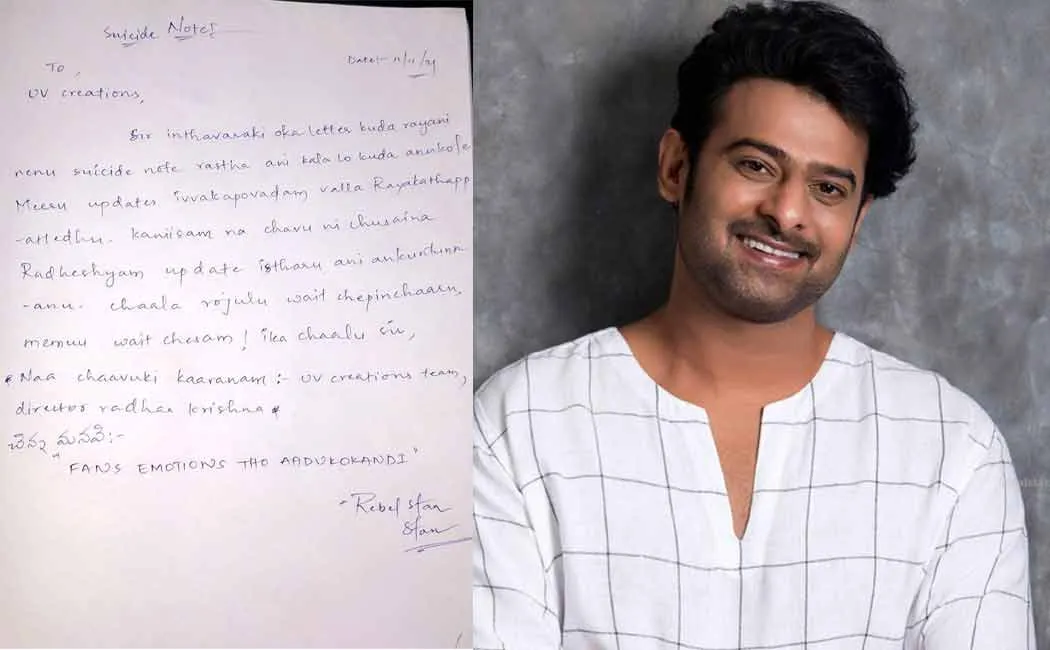 Suicide Notes
Date:- 11/11/21
To,
UV creations,
Sir inthavaraki oka letter kuda rayani
nenu suicide note rastha ani kala lo kuda anukole
Meeru updates ivvakapovadam valla Rayakathapp
-atledhu. kaniisam na chavu ni chusaina
Radheshyam update istharu ani ankuntunn
-anu. chaala rojulu wait chepincharu,
memuu wait chesam! ika chaalu sir,
Naa chaavuki kaaranam:- UV creations team,
director radhaa krishna
చిన్న మనవి:-
"FANS EMOTIONS THO AADUKOKANDI"
- Rebel star
Stan